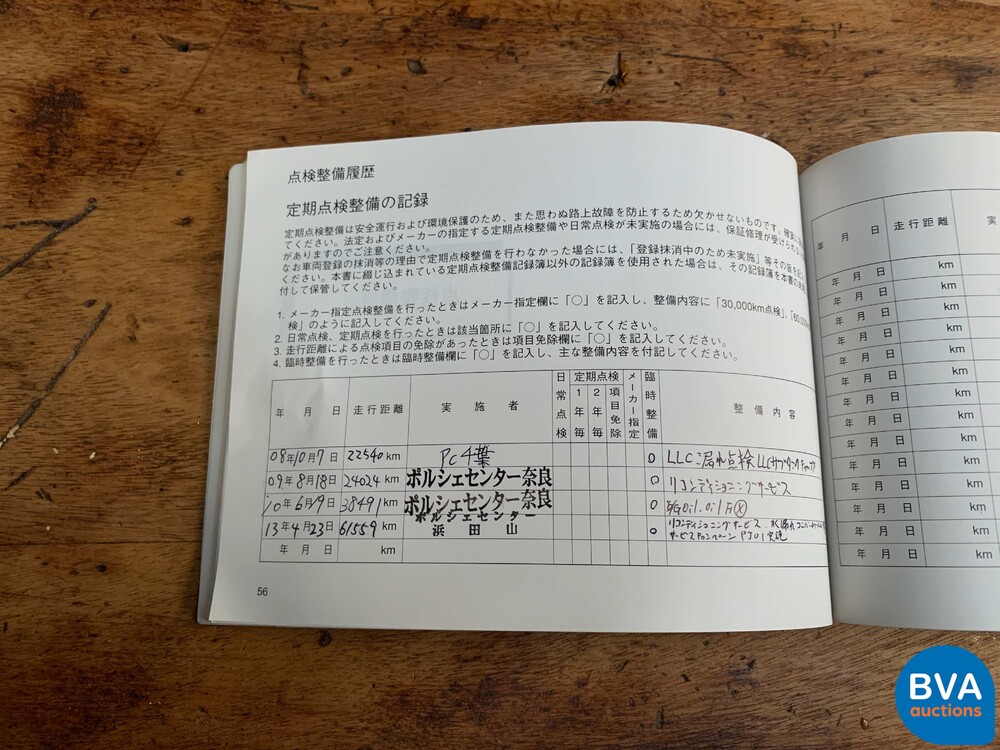 点検整備履歴
定期点検整備の記録
定期点検整備は安全運行および環境保護のため、また思わぬ路上故障を防止するため欠かせないものです。確実に
てください。法定およびメーカーの指定する定期点検整備や日常点検が未実施の場合には、保証修理が受けられない
がありますのでご注意ください。
なお車両登録の抹消等の理由で定期点検整備を行わなかった場合には、「登録抹消中のため未実施」等その旨を記
ください。本書に綴じ込まれている定期点検整備記録簿以外の記録簿を使用された場合は、その記録簿を本書の
付して保管してください。
1. メーカー指定点検整備を行ったときはメーカー指定欄に「○」を記入し、整備内容に「30,000km点検」、「60,000
検」のように記入してください。
2. 日常点検、定期点検を行ったときは該当箇所に「○」を記入してください。
3. 走行距離による点検項目の免除があったときは項目免除欄に「○」を記入してください。
4. 臨時整備を行ったときは臨時整備欄に「○」を記入し、主な整備内容を付記してください。
年 月 日 走行距離 実施者 日常点検 定期点検 1年毎 2年毎 項目免除 メーカー指定 臨時整備 整備内容
08年10月7日 22540 km PC千葉 ○ LLC漏れ点検 LLC
09年8月18日 24024 km ポルシェセンター奈良 ○ リコンディショニングサービス
10年6月19日 38491 km ポルシェセンター奈良 ○ E/G Oil. Oil
13年4月23日 61559 km ポルシェセンター浜田山 ○ リコンディショニングサービス
サービスキャンペーン 実施
年 月 日 km
56
年 月 日 走行距離 実
年 月 日 km
年 月 日 km
年 月 日 km
年 月 日 km
年 月 日 km
年 月 日 km
年 月 日 km
年 月 日 km
年 月 日 km
年 月 日 km
年 月 日 km
年 月 日 km
年 月 日 km
BVA
auctions